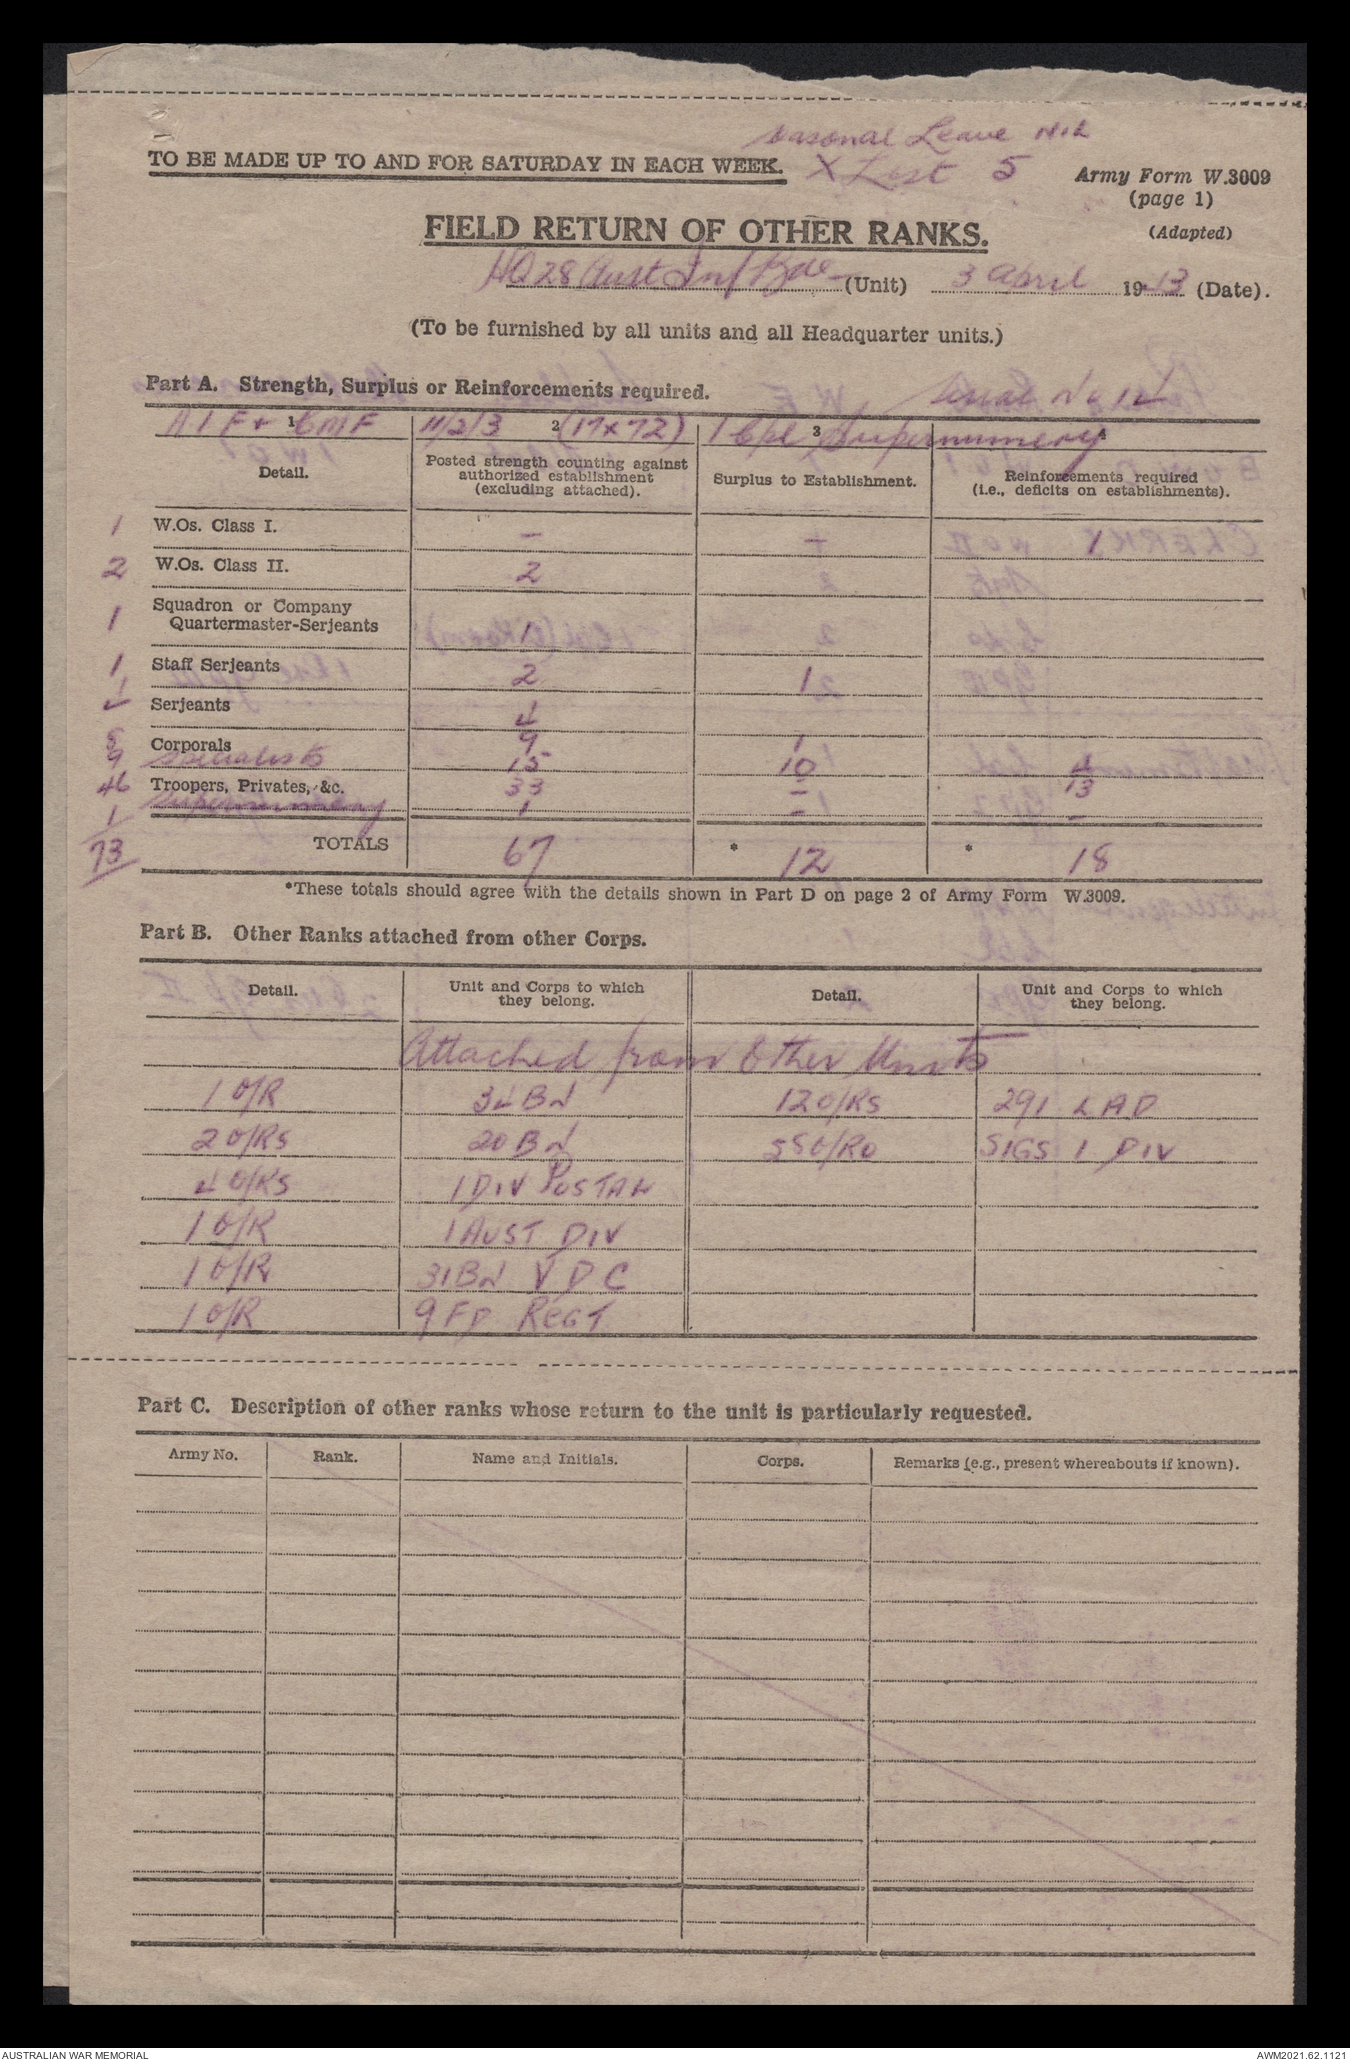 Seasonal Leave NIL
TO BE MADE UP TO AND FOR SATURDAY IN EACH WEEK. X List 5
Army Form W.3009
(page 1)
(Adapted)
FIELD RETURN OF OTHER RANKS.
HQ 28 Aust Inf Bde (Unit) 3 April 1943 (Date).
(To be furnished by all units and all Headquarter units.)
Part A. Strength, Surplus or Reinforcements required. Serial No 12
AIF + CMF 1 11/2/3 2 (17x72) 1 Cpl 3 Supernumery 4
Detail. Posted strength counting against authorized establishment (excluding attached). Surplus to Establishment. Reinforcements required (i.e., deficits on establishments).
1 W.Os. Class I. – + 1
2 W.Os. Class II. 2
1 Squadron or Company Quartermaster-Serjeants 1
1 Staff Serjeants 2 1
4 Serjeants 4
5 Corporals 9 1
9 Specialists 15 10 4
46 Troopers, Privates, &c. 33 – 13
1 Supernumery 1 – –
73 TOTALS 67 * 12 * 18
*These totals should agree with the details shown in Part D on page 2 of Army Form W.3009.
Part B. Other Ranks attached from other Corps.
Detail. Unit and Corps to which they belong. Detail. Unit and Corps to which they belong.
Attached from Other Units
1 O/R 34 BN 12 O/RS 291 LAD
2 O/RS 20 BN 55 O/RS SIGS 1 DIV
4 O/RS 1 DIV POSTAL
1 O/R 1 AUST DIV
1 O/R 31 BN V D C
1 O/R 9 FD REGT
Part C. Description of other ranks whose return to the unit is particularly requested.
Army No. Rank. Name and Initials. Corps. Remarks (e.g., present whereabouts if known).
AUSTRALIAN WAR MEMORIAL AWM2021.62.1121